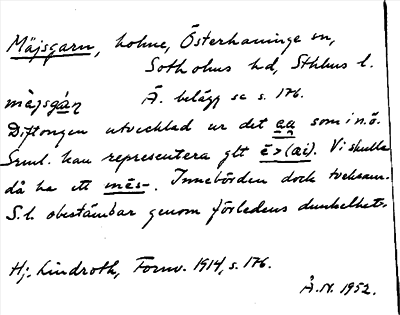 Mäjsgarn, holme, Österhaninge sn,
Sotholms hd, Sthlms l.
màjsgá̱ɳ Ä. belägg se s. 176.
Diftongen utvecklad ur det aa som i n.ö.
Smul. kan representera gtt ē > (ai). Vi skulle
då ha ett mēs-. Innebörden dock tveksam.
S.l. obestämbar genom förledens dunkelhet.
Hj. Lindroth, Fornv. 1914, s. 176.
Å.N. 1952.